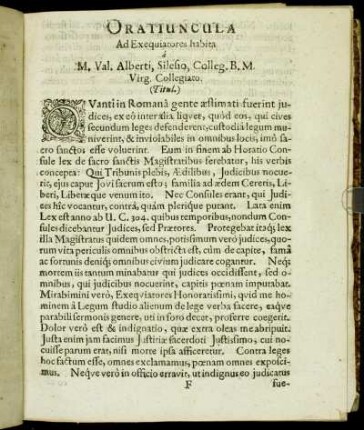 ORATIUNCULA
Ad Exequiatores habita
à
M. Val. Alberti, Silesio, Colleg. B. M.
Virg. Collegiato.
(Titul.)
QVanti in Romanâ gente æstimati fuerint ju-
dices, ex eô inter alia liqvet, quòd eos, qui cives
secundum leges defenderent, custodiâ legum mu-
niverint, & inviolabiles in omnibus locis, imò sa-
cro sanctos esse voluerint. Eum in finem ab Horatio Con-
sule lex de sacro sanctis Magistratibus ferebatur, his verbis
concepta: Qui Tribunis plebis, Ædilibus, Judicibus nocue-
rit, ejus caput Jovi sacrum esto; familia ad ædem Cereris, Li-
beri, Liberæque venum ito. Nec Consules erant, qui Judi-
ces hîc vocantur, contrà, quàm plerique putant. Lata enim
Lex est anno ab U. C. 304. quibus temporibus, nondum Con-
sules dicebantur Judices, sed Prætores. Protegebat itaq; lex
illa Magistratus quidem omnes, potissimum verò judices, quo-
rum vita periculis omnibus obstricta est, cùm de capite, famâ
ac fortunis deniq; omnibus civium judicare cogantur. Neq;
mortem iis tantum minabatur qui judices occidissent, sed o-
mnibus, qui judicibus nocuerint, capitis pœnam imputabat.
Mirabimini verò, Exeqviatores Honoratissimi, qvid me ho-
minem à Legum studio alienum de lege verba facere, eaqve
parabili sermonis genere, uti in foro decet, proferre coegerit.
Dolor verò est & indignatio, quæ extra oleas me abripuit.
Justa enim jam facimus Justitiæ sacerdoti Justissimo, cui no-
cuisse parum erat, nisi morte ipsa afficeretur. Contra leges
hoc factum esse, omnes exclamamus, pœnam omnes exposci-
mus. Neqve verò in officio erravit, ut indignus eo judicatus
F fue-